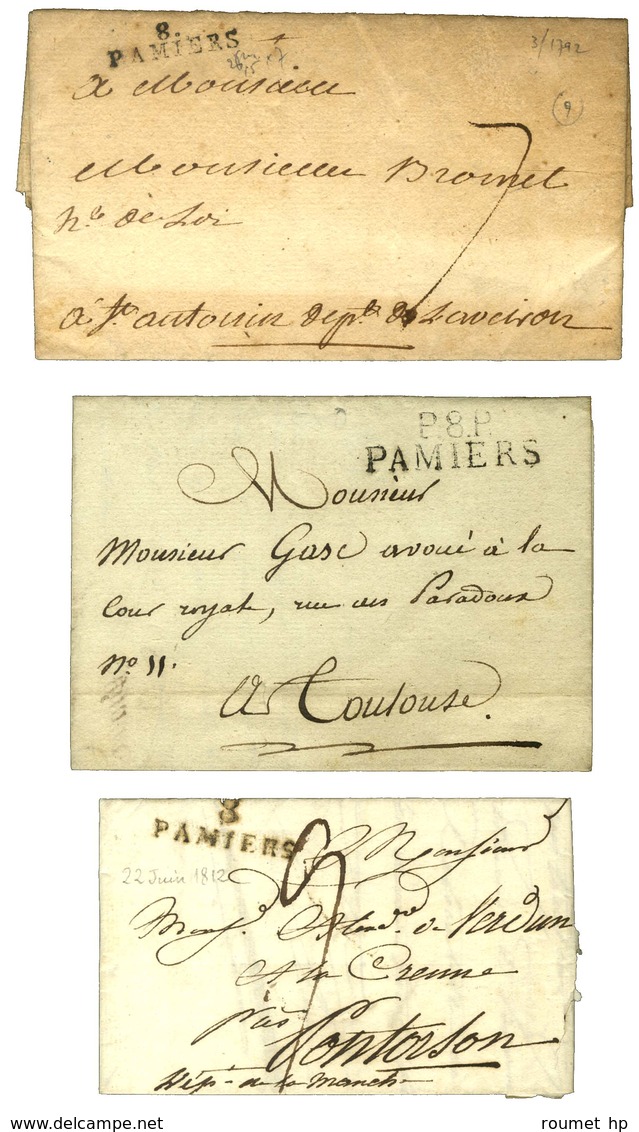 8.
PAMIERS
3/1792
9
7
a Monsieur
Monsieur Bromet
h.e de Loi
a st. antonin dept. de Laveiron
P.8.P.
PAMIERS
Monsieur
Monsieur Gasc avoué à la
Cour royale, rue des Paradoux
No 11.
A Toulouse.
8
PAMIERS
22 Juin 1812
9
Monsieur
Alexdre de Verdun
A la Crenne
près
Pontorson
Dépt. de la Manche
roumet hp